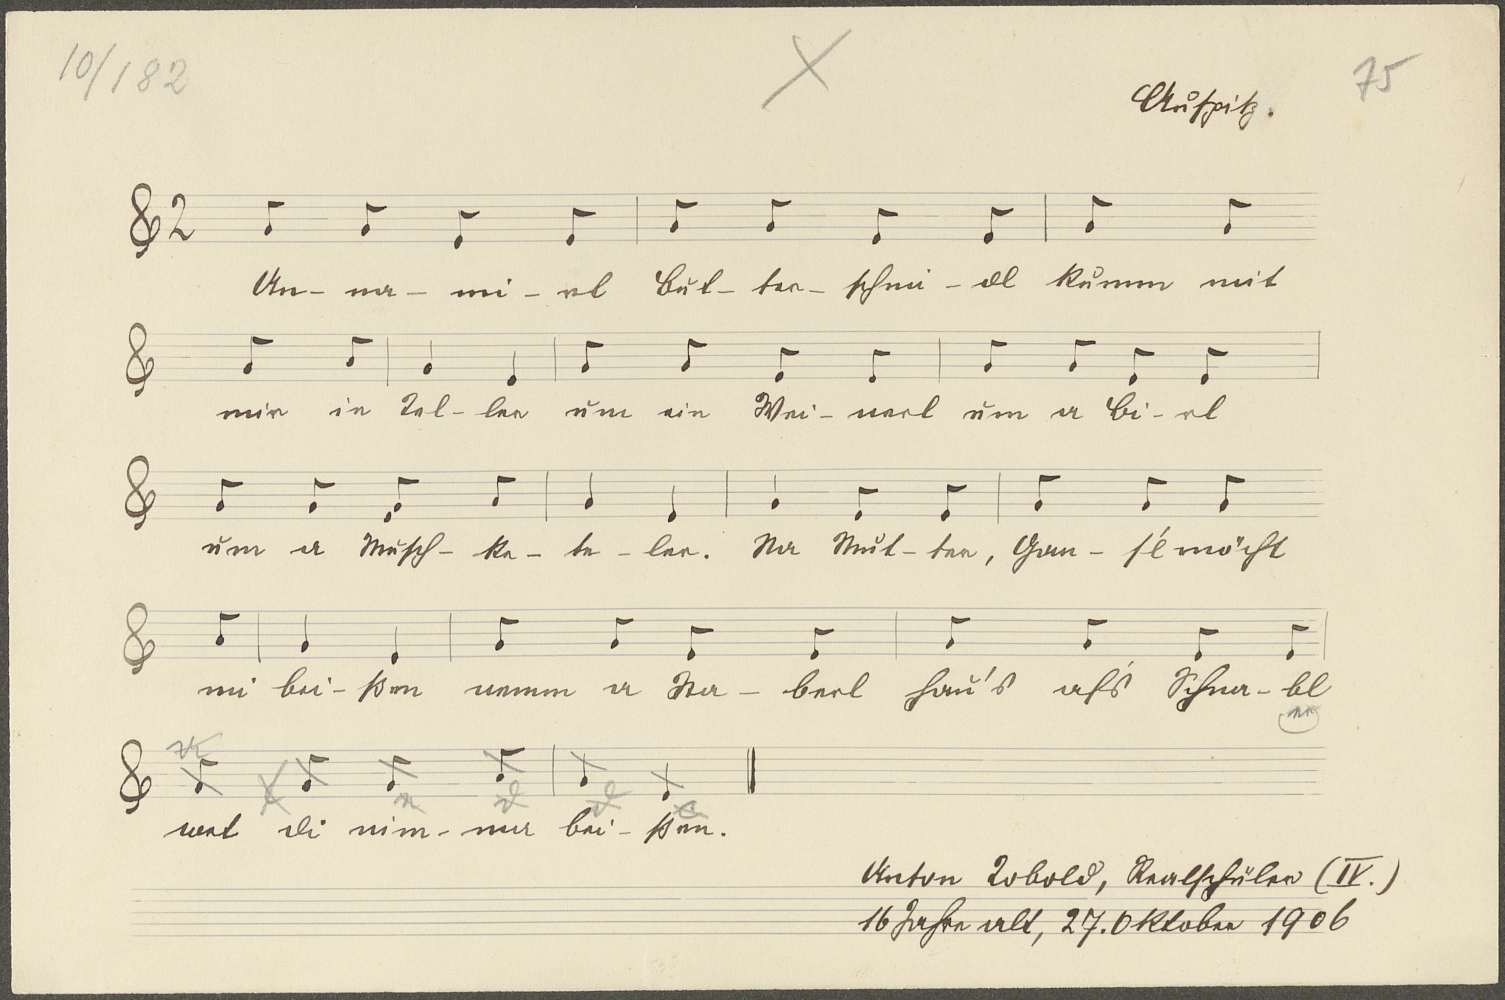 10/182
75
Auspitz.
2
An- na- mi- rl But- ter- schni- dl kumm mit
mir in Kel- ler um ein Wei- nerl um a Bi- rl
um a Musch- ka- te- ler. Na Mut- ter, Gan- s'l möcht
mi bei- ßen nemm a Sta- berl hau's afs Schna- bl
wet di nim- ma bei- ßen.
Anton Kobold, Realschüler (IV.)
16 Jahre alt, 27. Oktober 1906